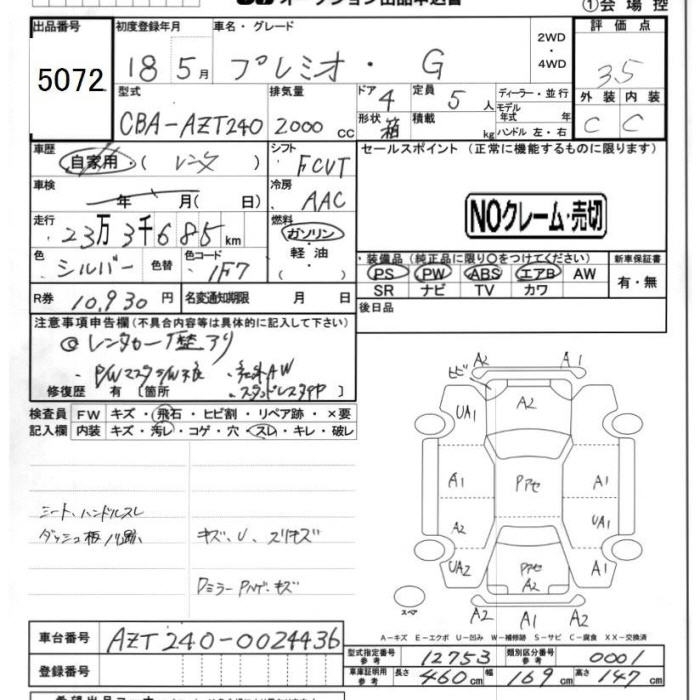 ①会場控
出品番号 初度登録年月 車名・グレード 2WD・4WD 評価点
5072 18 5月 プレミオ・G 3.5
型式 排気量 ドア 4 定員 5人 ディーラー・並行 外装 内装
CBA-AZT240 2000cc 形状 箱 積載 kg モデル年式 年 ハンドル 左・右 C C
車歴 自家用・(レンタ) シフト FCVT セールスポイント (正常に機能するものに限ります)
車検 年 月(日) 冷房 AAC
NOクレーム・売切
走行 23万3千685km 燃料 ガソリン・軽油・( )
色 シルバー 色替 色コード 1F7
・装備品(純正品に限り○をつけてください) 新車保証書
PS PW ABS エアB AW 有・無
SR ナビ TV カワ
R券 10,930円 名変通知期限 月 日 後日品
注意事項申告欄(不具合内容等は具体的に記入して下さい)
◎レンタカー歴あり
・P/WマスタS/W不良 ・社外AW
修復歴 有 〔箇所 ・スタッドレスタイヤ
検査員記入欄 FW キズ・飛石・ヒビ割・リペア跡・×要
内装 キズ・汚レ・コゲ・穴・スレ・キレ・破レ
シート、ハンドルスレ
ダッシュ板ノリ跡、 キズ、U、スリキズ
Dミラー
A2 A1
ヒビ
UA1 A2
A1 Pアセ A1
A2 UA1
UA2 Pアセ A2 A1
スペア A2 A1 A2
A-キズ E-エクボ U-凹み W-補修跡 S-サビ C-腐食 XX-交換済
車台番号 AZT240-0024436
型式指定番号 参考 12753 類別区分番号 参考 0001
登録番号 車庫証明用 参考 長さ 460cm 幅 169cm 高さ 147cm